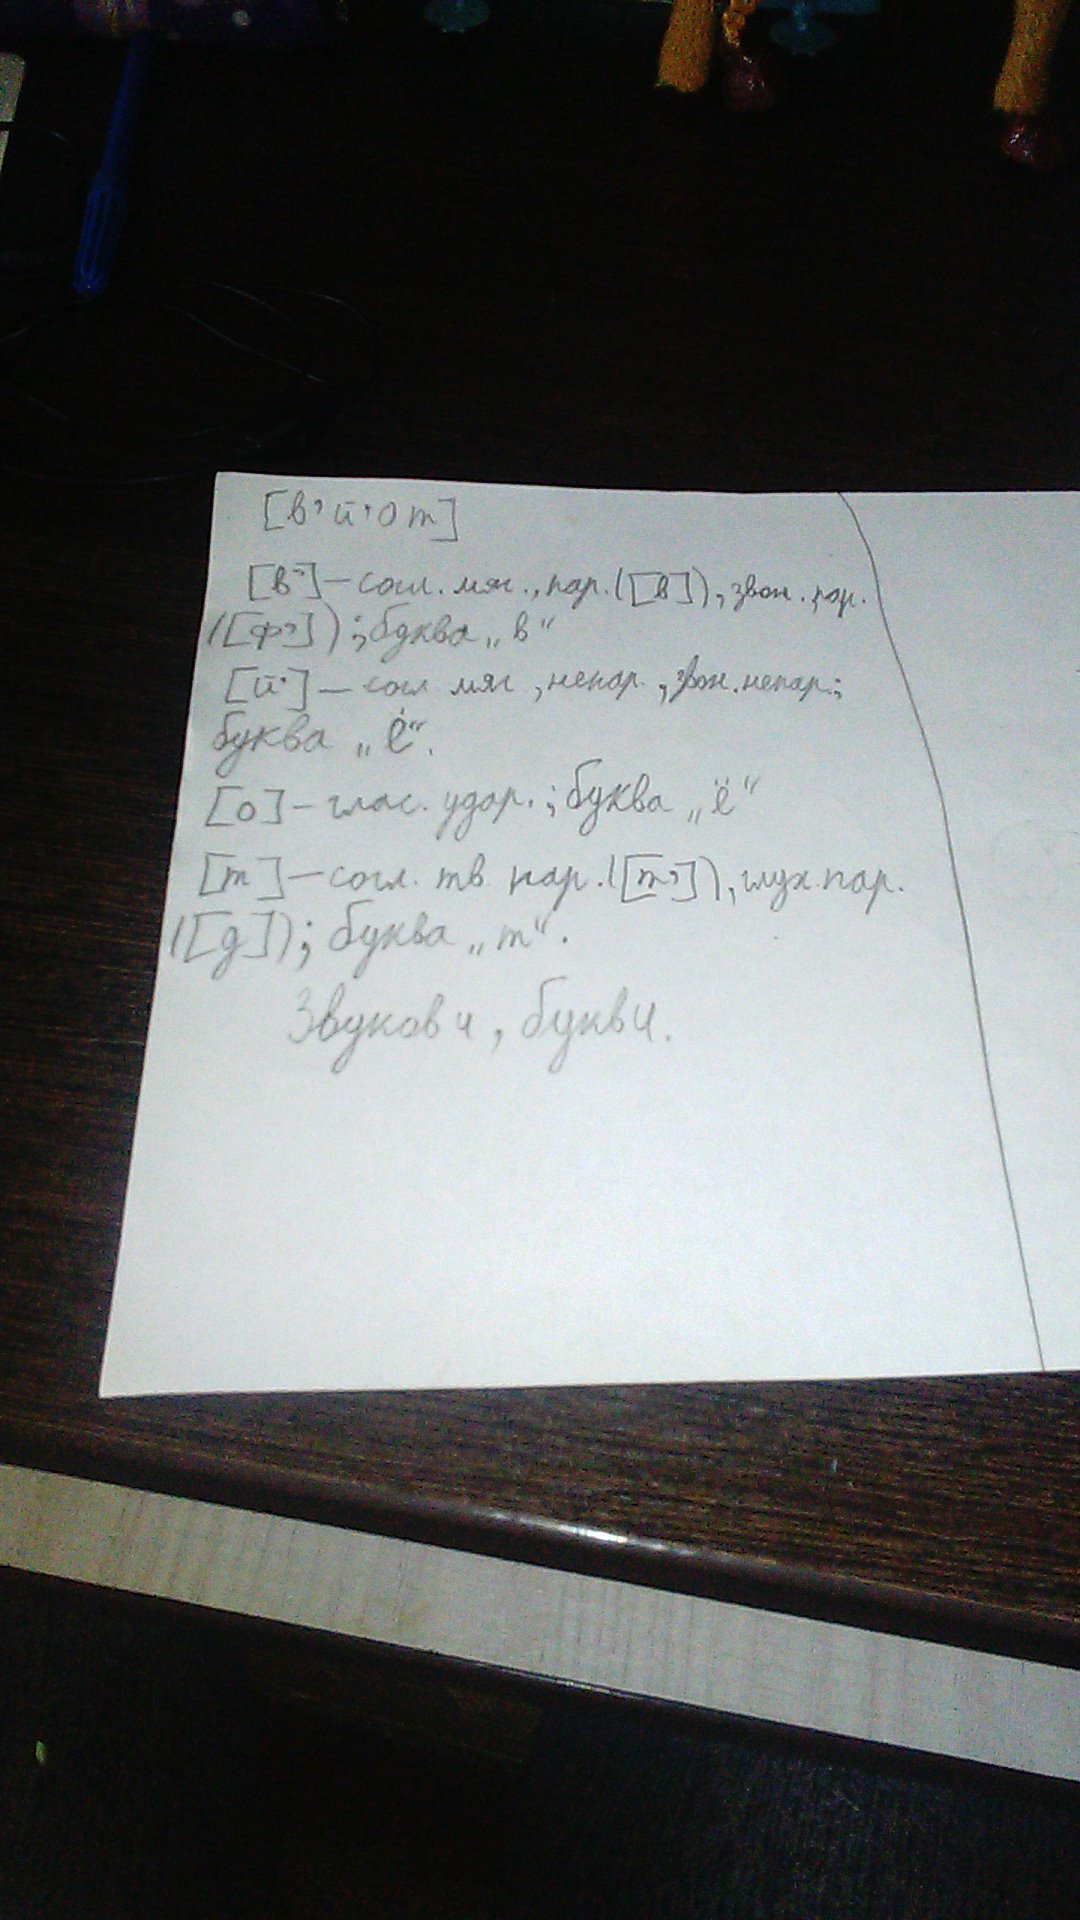 [в'й'от]
[в'] – согл. мяг., пар. ([в]), звон. пар.
([ф']); буква „в“
[й'] – согл. мяг, непар., звон. непар.;
буква „ё“.
[о] – глас. удар.; буква „ё“
[т] – согл. тв. пар. ([т']), глух. пар.
([д]); буква „т“.
Звуков 4, букв 4.